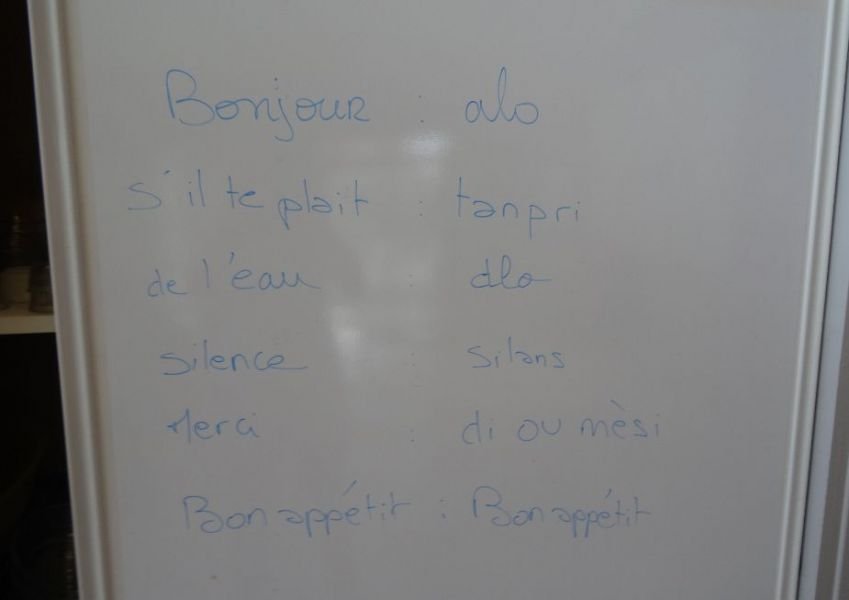 Bonjour : alo
s'il te plait : tanpri
de l'eau : dlo
silence : silans
Merci : di ou mèsi
Bon appétit : Bon appétit